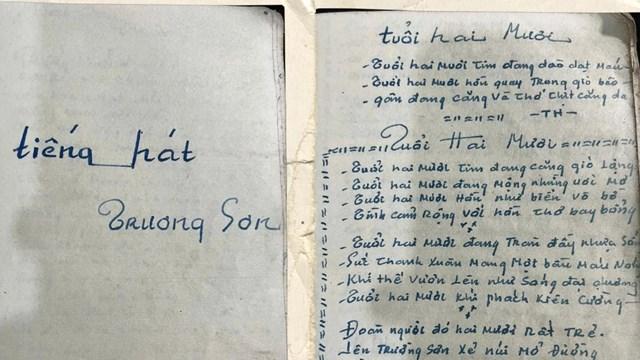 tiếng hát
Trương Sơn
tuổi hai Mươi
- Tuổi hai Mươi tim đang dào dạt Máu
- Tuổi hai Mươi hồn quay Trong gió bão
- gân đang căng và thớ thịt căng da
= " = " = " -TH-
Tuổi Hai Mươi = " = " = " =
- Tuổi hai Mươi tim đang căng gió Lộng
- Tuổi hai Mươi đang Mộng những ước Mơ
- Tuổi hai Mươi Hồn như biển vô bờ
- Tình cảm Rộng với hồn thơ bay bổng
- Tuổi hai Mươi đang Tràn đầy nhựa
- Sức Thanh Xuân Mang Một bầu Máu
- Khí thế Vươn Lên như Sóng đại dương
- Tuổi hai Mươi Khí phách Kiên Cường
Đoàn người đó hai Mươi Rất TRẺ.
Lên TRường Sơn xẻ núi Mở Đường